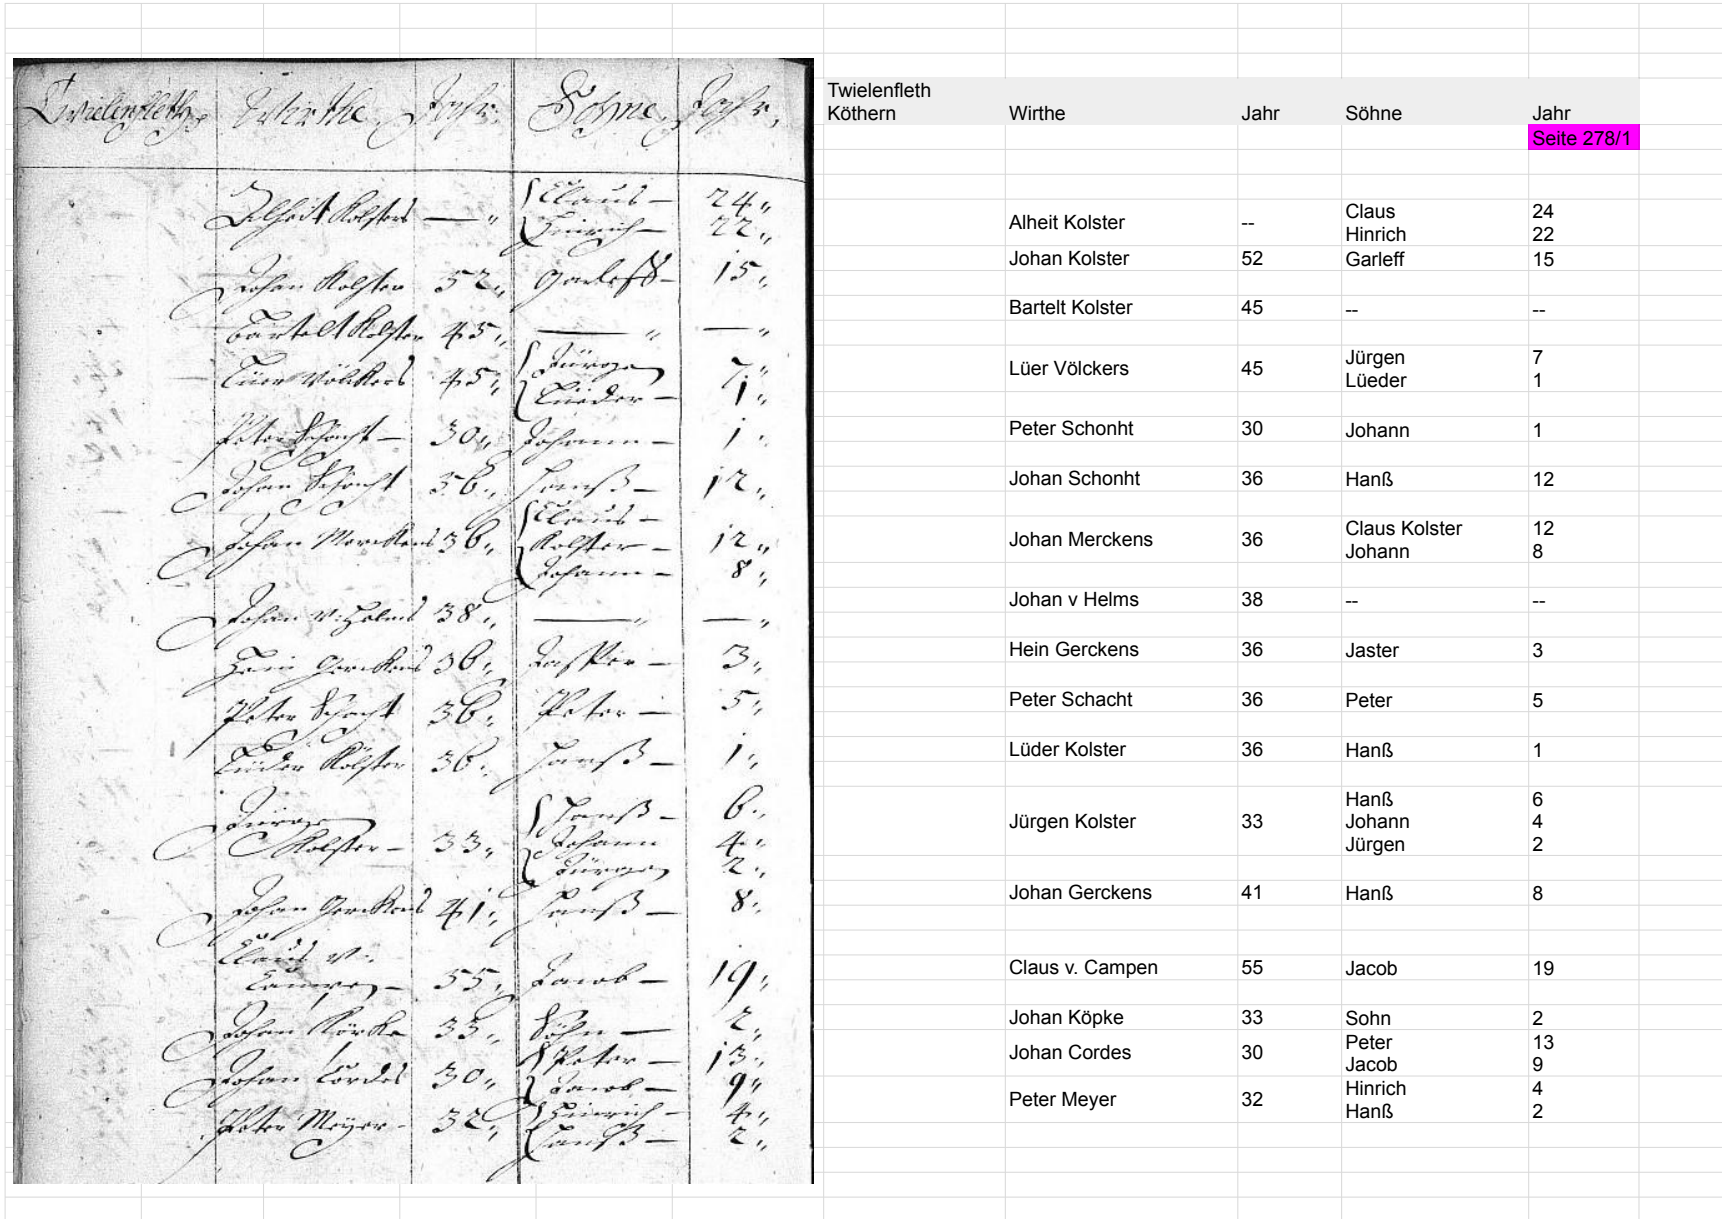 Twielenfleth Wirthe Jahr. Söhne Jahr.
Alheit Kolsters — „ Claus — 24 „
Hinrich — 22 „
Johan Kolster 52 „ Garleff — 15 „
Bartelt Kolster 45 „ — „ — „
Lüer Völckers 45 „ Jürgen 7 „
Lüeder — 1 „
Peter Schacht — 30 „ Johann — 1 „
Johan Schacht 36 „ Hanß — 12 „
Claus —
Johan Merckens 36 „ Kolster — 12 „
Johann — 8 „
Johan v: Helms 38 „ — „ — „
Hein Gerckens 36 „ Jasper — 3 „
Peter Schacht 36 „ Peter — 5 „
Lüder Kolster 36 „ Hanß — 1 „
Jürgen Hanß — 6 „
Kolster — 33 „ Johann 4 „
Jürgen 2 „
Johan Gerckens 41 „ Hanß — 8 „
Claus v:
Campen — 55 „ Jacob — 19 „
Johan Köpke 33 „ Söhn — 2 „
Johan Cordes 30 „ Peter — 13 „
Jacob — 9 „
Peter Meyer — 32 „ Hinrich — 4 „
Hanß — 2 „
Twielenfleth
Köthern Wirthe Jahr Söhne Jahr
Seite 278/1
Claus 24
Alheit Kolster --
Hinrich 22
Johan Kolster 52 Garleff 15
Bartelt Kolster 45 -- --
Jürgen 7
Lüer Völckers 45
Lüeder 1
Peter Schonht 30 Johann 1
Johan Schonht 36 Hanß 12
Claus Kolster 12
Johan Merckens 36
Johann 8
Johan v Helms 38 -- --
Hein Gerckens 36 Jaster 3
Peter Schacht 36 Peter 5
Lüder Kolster 36 Hanß 1
Hanß 6
Jürgen Kolster 33 Johann 4
Jürgen 2
Johan Gerckens 41 Hanß 8
Claus v. Campen 55 Jacob 19
Johan Köpke 33 Sohn 2
Peter 13
Johan Cordes 30
Jacob 9
Hinrich 4
Peter Meyer 32
Hanß 2